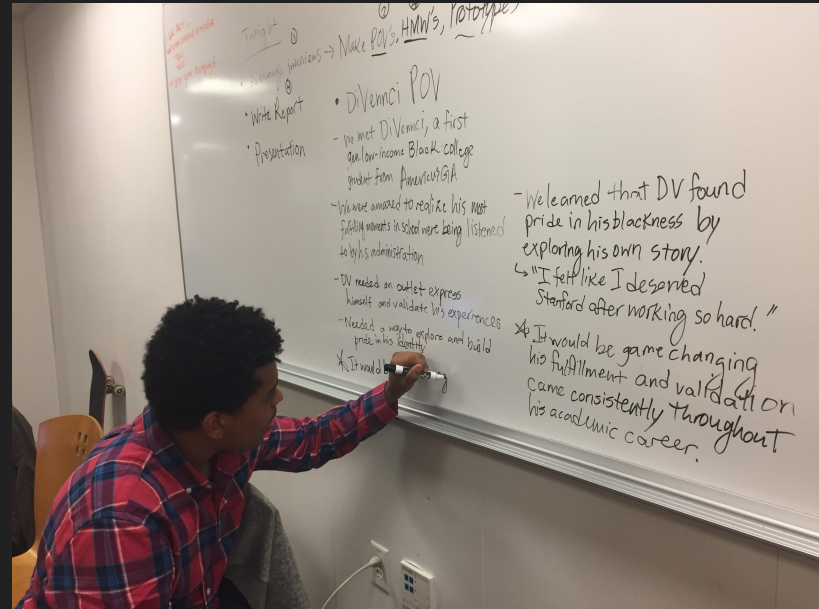 Tonight
interviews → Make POV's, HMW's, Prototypes
• Write Report
• Presentation
• DiVennci POV
- We met DiVennci, a first
gen low-income Black college
student from Americus, GA
- We were amazed to realize his most
fulfilling moments in school were being listened
to by his administration
- DV needed an outlet express
himself and validate his experiences
- Needed a way to explore and build
pride in his identity
* It would b
- We learned that DV found
pride in his blackness by
exploring his own story.
↳ "I felt like I deserved
Stanford after working so hard."
* It would be game changing
his fulfillment and validation
came consistently throughout
his academic career.